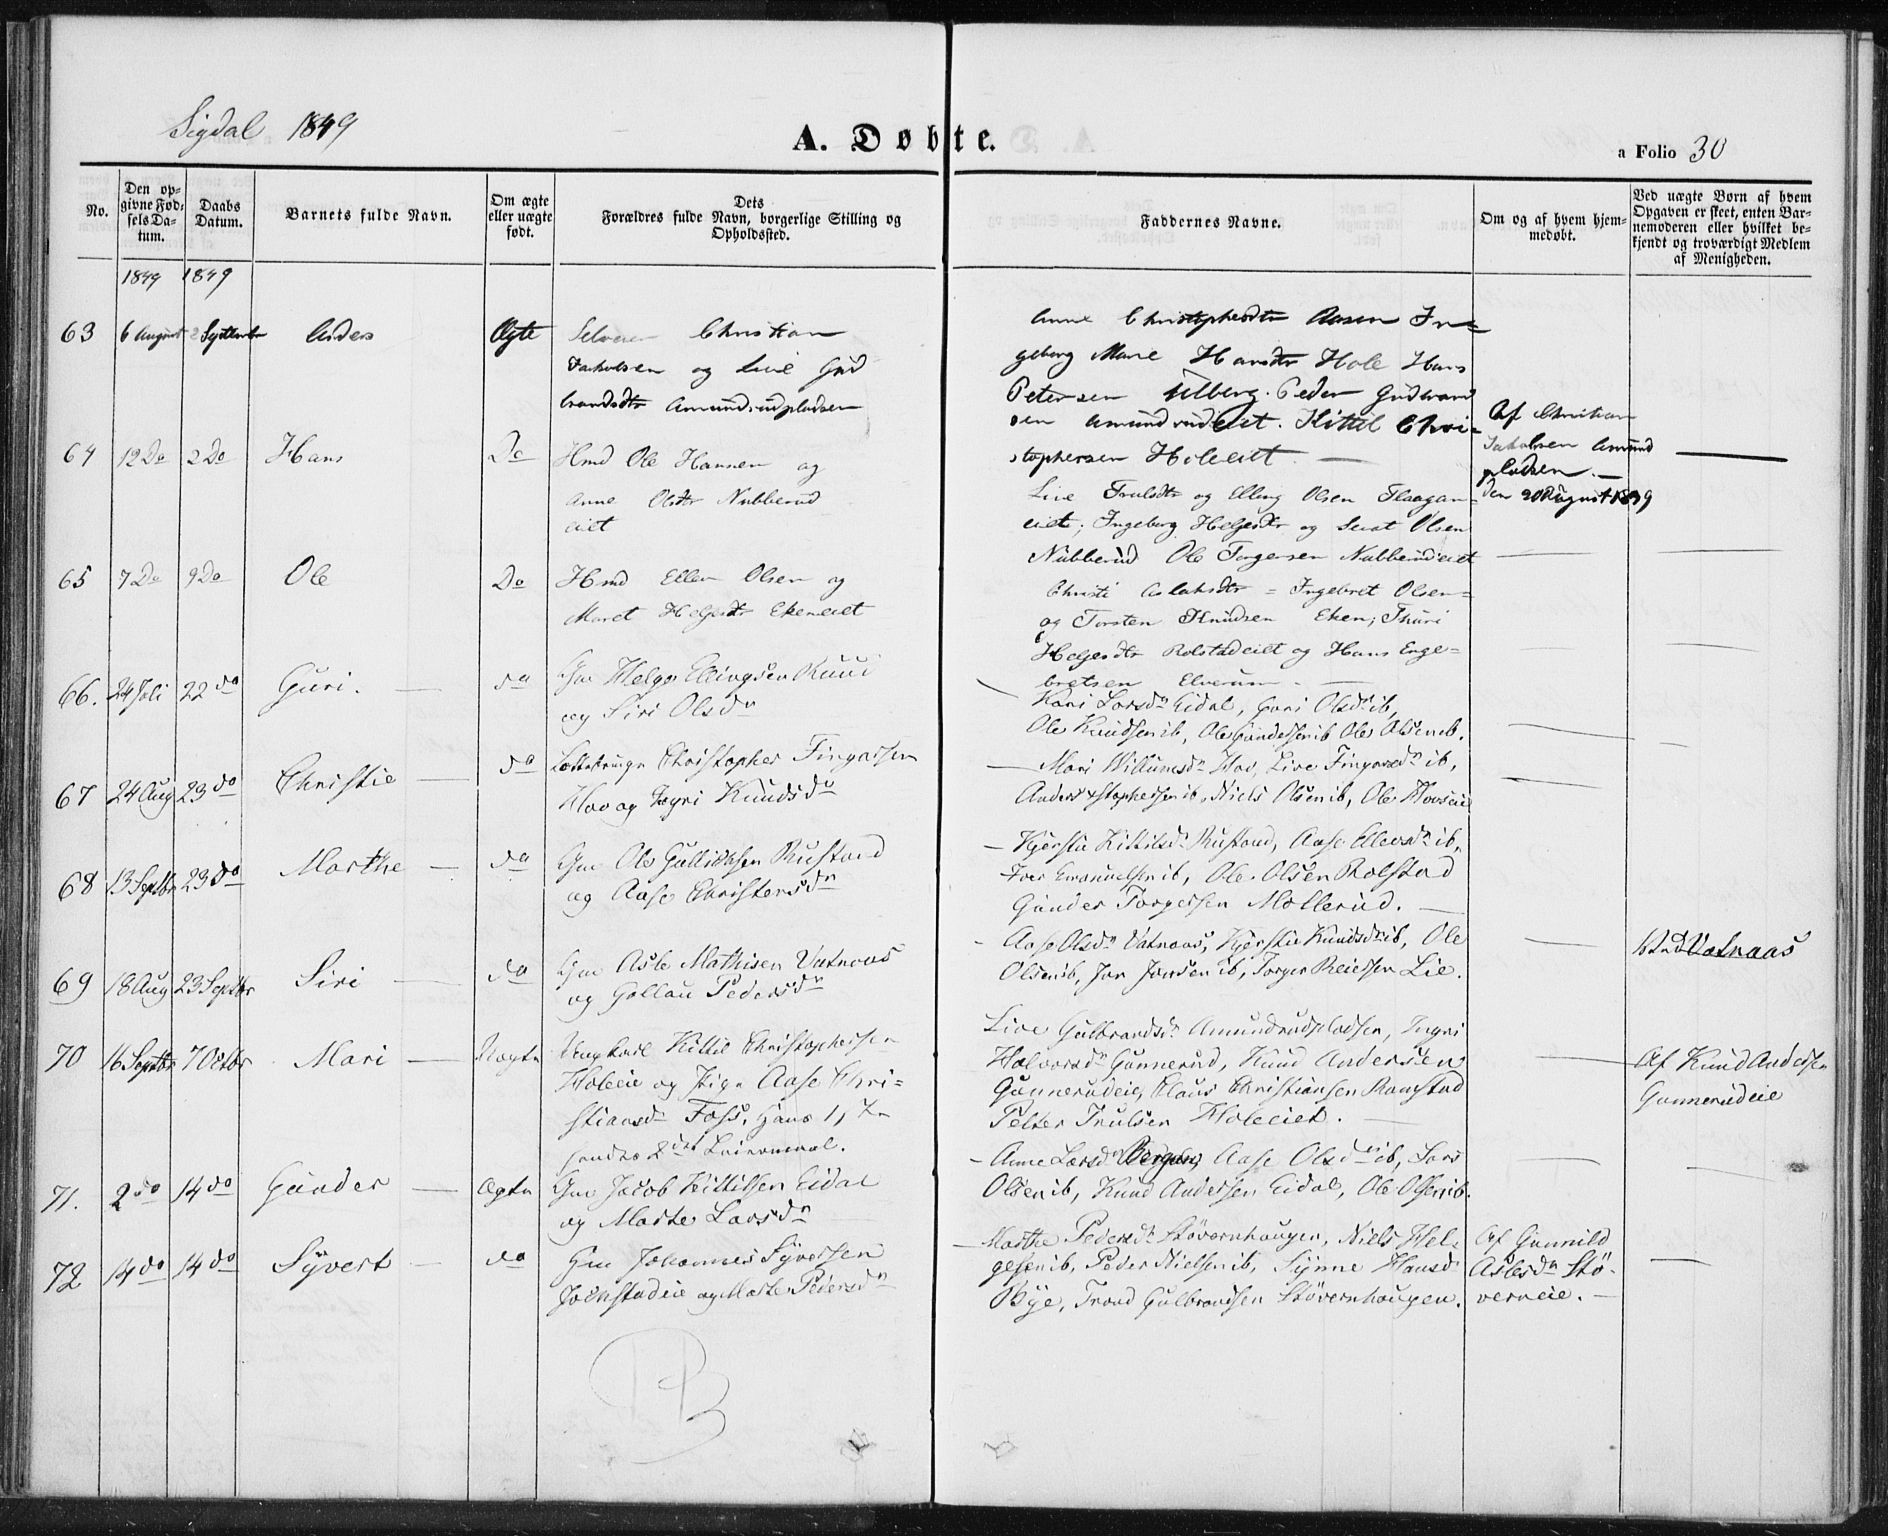 Sigdal 1849
A. Døbte.
a Folio 30
No.
Den op-
givne Fød-
sels Da-
tum.
Daabs
Datum.
Barnets fulde Navn.
Om ægte
eller uægte
født.
Dets
Forældres fulde Navn, borgerlige Stilling og
Opholdssted.
Faddernes Navne.
Om og af hvem hjem-
medøbt.
Ved uægte Børn af hvem
Opgaven er skeet, enten Bar-
nemoderen eller hvilket be-
kjendt og troværdigt Medlem
af Menigheden.
1849 1849
63 6 August 2 September Anders Ægte Selveier Christian
Jakobsen og Live Gud
brandsdtr Amundrudpladsen
Anne Christophersdtr Aasen In-
geborg Marie Hansdtr Hole Hans
Petersen Ulberg. Peder Gudbrand
sen Amundrudeiet. Kittil Chri-
stophersen Holeeiet. —
Af Christian
Jakobsen Amund
pladsen. —
den 20 August 1849
64 12 Do 2 Do Hans Do Hmd Ole Hansen og
Anne Olsdtr Nubberud
eiet
Live Trulsdtr og Elling Olsen Flaagan-
eiet; Ingeborg Helgesdtr og Olsen
Nubberud Ole Torgersen Nubberudeiet
65 7 Do 9 Do Ole Do Hmd Ellen Olsen og
Maret Helgesdtr Ekeneiet
Christi Aslaksdtr = Ingebret Olsen =
og Torsten Knudsen Eken; Thuri
Helgesdtr Rolstadeiet og Hans Enge-
bretsen Elverum. —
66. 24 Juli 22 do Guri. — do Gm Helge Ellingsen Ruud
og Siri Olsdr
Kari Larsdr Eidal, Guri Olsdr ib,
Ole Knudsen ib, Ole Gundersen ib Ole Olsen ib.
67 24 Aug 23 do Christie — do Christopher Fingarsen
Hov og Ingri Knudsdr
— Mari Willumsdr Hov, Live Fingarsdr ib,
Anders Xstophersen ib, Niels Olsen ib, Ole Hovseie
68 13 Septbr 23 do Marthe — do Gm Ole Gulliksen Rustand
og Aase Christensdr
— Kjerstie Kittilsdr Rustand, Aase Ellevsdr ib,
Iver Emanuelsen ib, Ole Olsen Rolstad
Gunder Torgersen Mollerud. —
69 18 Aug 23 Septbr Siri — do Gm Asle Mathisen Vatnaas
og Gollau Pedersdr
— Aase Olsdr Vatnaas, Kjerstie Knudsdr ib, Ole
Olsen ib, Jon Jonsen ib, Torger Reiersen Lie.
Vatnaas
70 16 Septbr 7 Octbr Mari — Uægte Ungkarl Kittil Christophersen
Holeeie og Pige Aase Chri-
stiansd Foss, hans 1,
hendes 2det Leiermaal.
Live Gulbrandsdr Amundrudpladsen, Ingri
Halvorsdr Gunnerud, Knud Andersen
Gunnerudeie, Claus Christiansen Ramstad
Petter Trulsen Holeeiet. —
Af Knud Andersen
Gunnerudeie
71. 2 do 14 do Gunder — Ægte Gm Jacob Kittilsen Eidal
og Marte Larsdr
— Anne Larsdr Bergan, Aase Olsdr ib, Lars
Olsen ib, Knud Andersen Eidal, Ole Olsen ib.
72 14 do 14 do Syvert — do Gm Johannes Syversen
Jolnstadeie og Marte Pedersdr
— Marthe Pedersdr Støvernhaugen, Niels Hel-
gesen ib, Peder Nielsen ib, Synne Hansd
Bye, Trond Gulbrandsen Støvernhaugen.
Af Gunnild
Aslesdr Stø-
verneie. —
PB